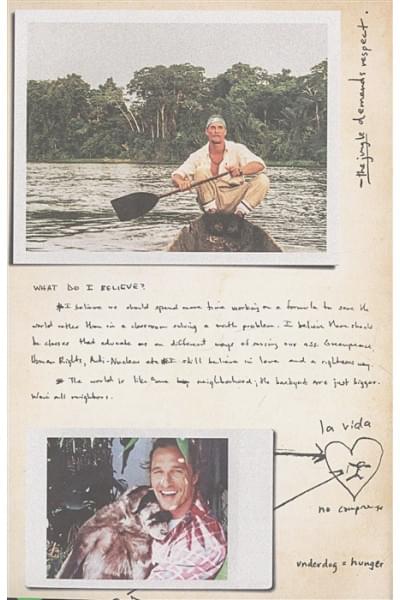 - the jungle demands respect.
WHAT DO I BELIEVE?
I believe we should spend more time working on a formula to save the
world rather than in a classroom solving a math problem. I believe there should
be classes that educate us on different ways of saving our ass. Greenpeace,
Human Rights, Anti-Nuclear etc I still believe in love and a righteous way.
The world is like same neighborhood; the backyards are just bigger.
We're all neighbors.
la vida
no compromise
underdog = hunger